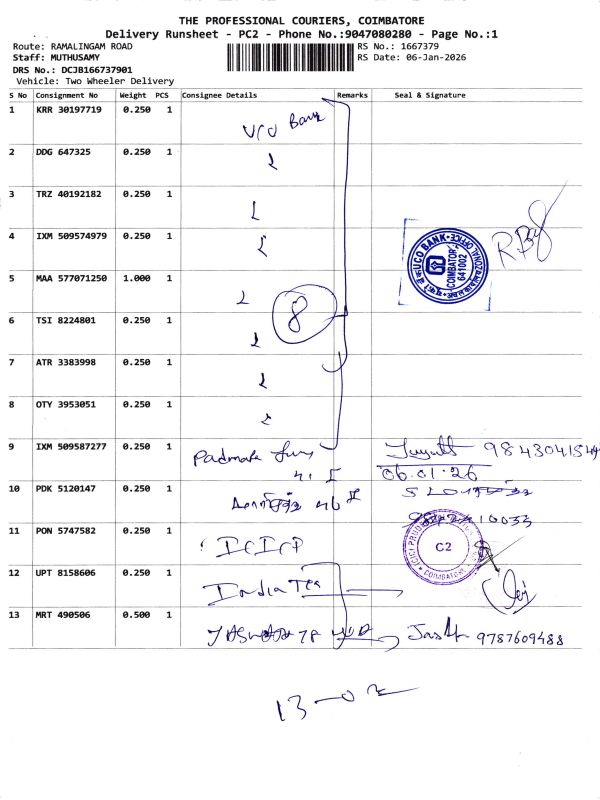 THE PROFESSIONAL COURIERS, COIMBATORE
Delivery Runsheet - PC2 - Phone No.:9047080280 - Page No.:1
Route: RAMALINGAM ROAD
RS No.: 1667379
Staff: MUTHUSAMY
RS Date: 06-Jan-2026
DRS No.: DCJB166737901
Vehicle: Two Wheeler Delivery
S No Consignment No Weight PCS Consignee Details Remarks Seal & Signature
1 KRR 30197719 0.250 1 Bank
2 DDG 647325 0.250 1
3 TRZ 40192182 0.250 1
4 IXM 509574979 0.250 1
UCO BANK
COIMBATORE
641002
5 MAA 577071250 1.000 1
8
6 TSI 8224801 0.250 1
7 ATR 3383998 0.250 1
8 OTY 3953051 0.250 1
9 IXM 509587277 0.250 1
06.01.26
10 PDK 5120147 0.250 1
11 PON 5747582 0.250 1
C2
COIMBATORE
12 UPT 8158606 0.250 1 India Tea
13 MRT 490506 0.500 1 9787609488